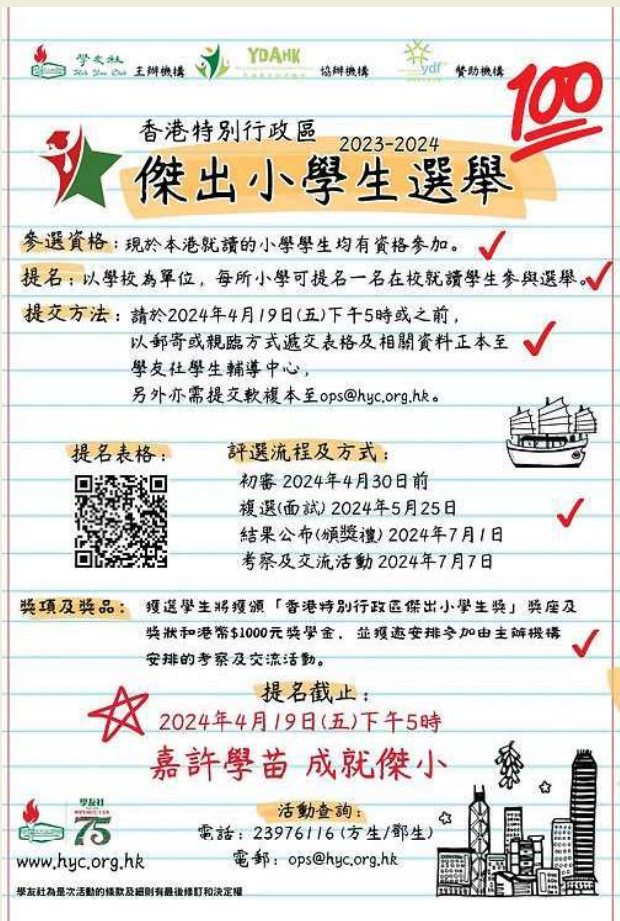 學友社
Hok Yau Club
主辦機構
YDAHK
協辦機構
ydf
贊助機構
100
香港特別行政區
2023-2024
傑出小學生選舉
參選資格：現於本港就讀的小學學生均有資格參加。
提名：以學校為單位，每所小學可提名一名在校就讀學生參與選舉。
提交方法：請於2024年4月19日(五)下午5時或之前，
以郵寄或親臨方式遞交表格及相關資料正本至
學友社學生輔導中心，
另外亦需提交軟複本至ops@hyc.org.hk。
提名表格：
評選流程及方式：
初審 2024年4月30日前
複選(面試) 2024年5月25日
結果公布(頒獎禮) 2024年7月1日
考察及交流活動 2024年7月7日
獎項及獎品：獲選學生將獲頒「香港特別行政區傑出小學生獎」獎座及
獎狀和港幣$1000元獎學金，並獲邀安排參加由主辦機構
安排的考察及交流活動。
提名截止：
2024年4月19日(五)下午5時
嘉許學苗 成就傑小
學友社
75
www.hyc.org.hk
活動查詢：
電話：23976116 (方生/鄧生)
電郵：ops@hyc.org.hk
學友社為是次活動的條款及細則有最後修訂和決定權